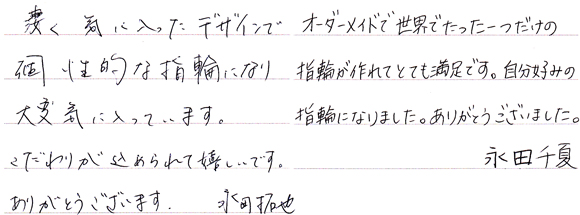 凄く気に入ったデザインで
個性的な指輪になり
大変気に入っています。
こだわりが込められて嬉しいです。
ありがとうございます. 永田拓也
オーダーメイドで世界でたった一つだけの
指輪が作れてとても満足です。自分好みの
指輪になりました。ありがとうございました。
永田千夏